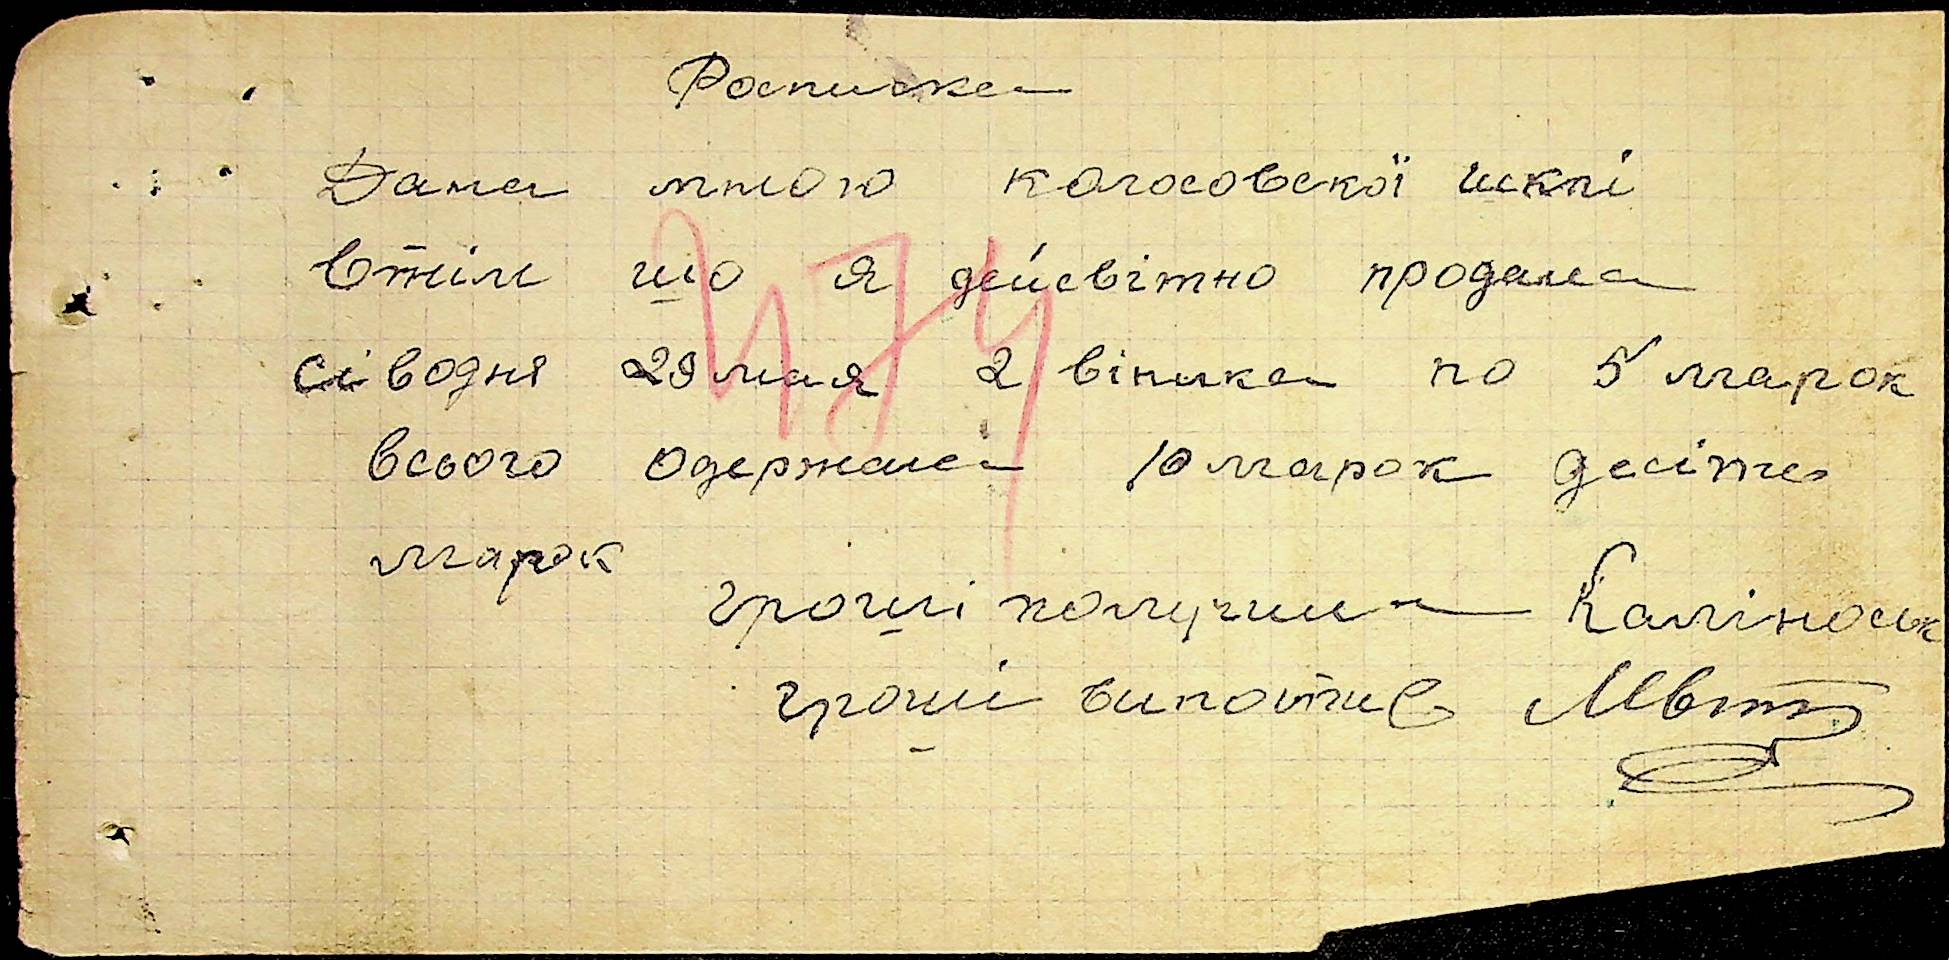 Росписка
Дана мною колосовскої шклі
втім що я дейсвітно продала
сіводня 29 мая 2 віника по 5 марок
всього одержала 10 марок десіть
марок
474
гроши получила Каліноськ
гроші виплатив